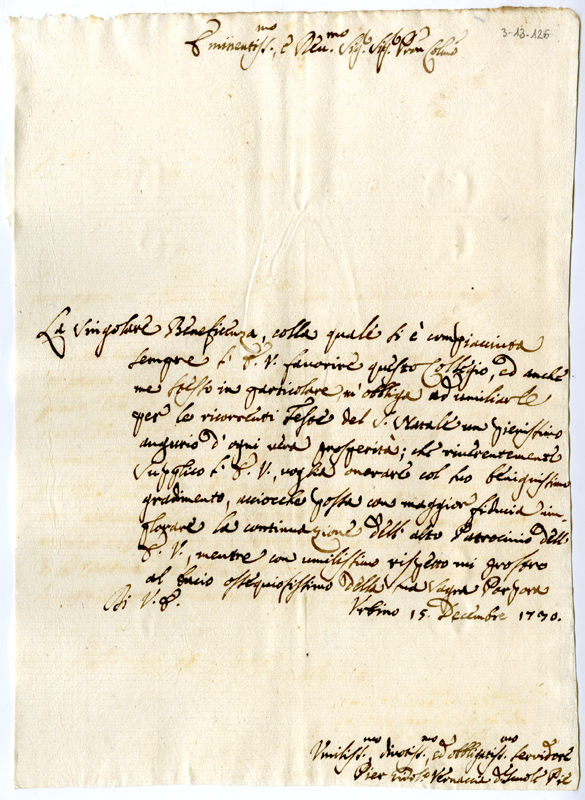 3-13-126
Eminentiss.mo, e Reu.mo Sig.r Sig.r Pron Colmo
La singolare Beneficenza, colla quale si è compiaciuta
sempre l'E.V. favorire questo Collegio, ed anche
me stesso in particolare m'obbliga ad umiliarle
per le ricorrenti Feste del S. Natale un pienissimo
augurio d'ogni vera prosperità; che riverentemente
supplico l'E.V., voglia onorare col suo benignissimo
gradimento, acciocche possa con maggior fiducia im-
plorare la continuazione dell'alto Patrocinio dell'
E.V., mentre con umilissimo rispetto mi prostro
al bacio ossequiosissimo della sua Sagra Porpora
Di V.E. Urbino 15. Decembre 1770.
Vmiliss.mo diuotiss.mo, ed obbligatiss.mo seruidore
Pier Vernaccia d. Scuole Pie